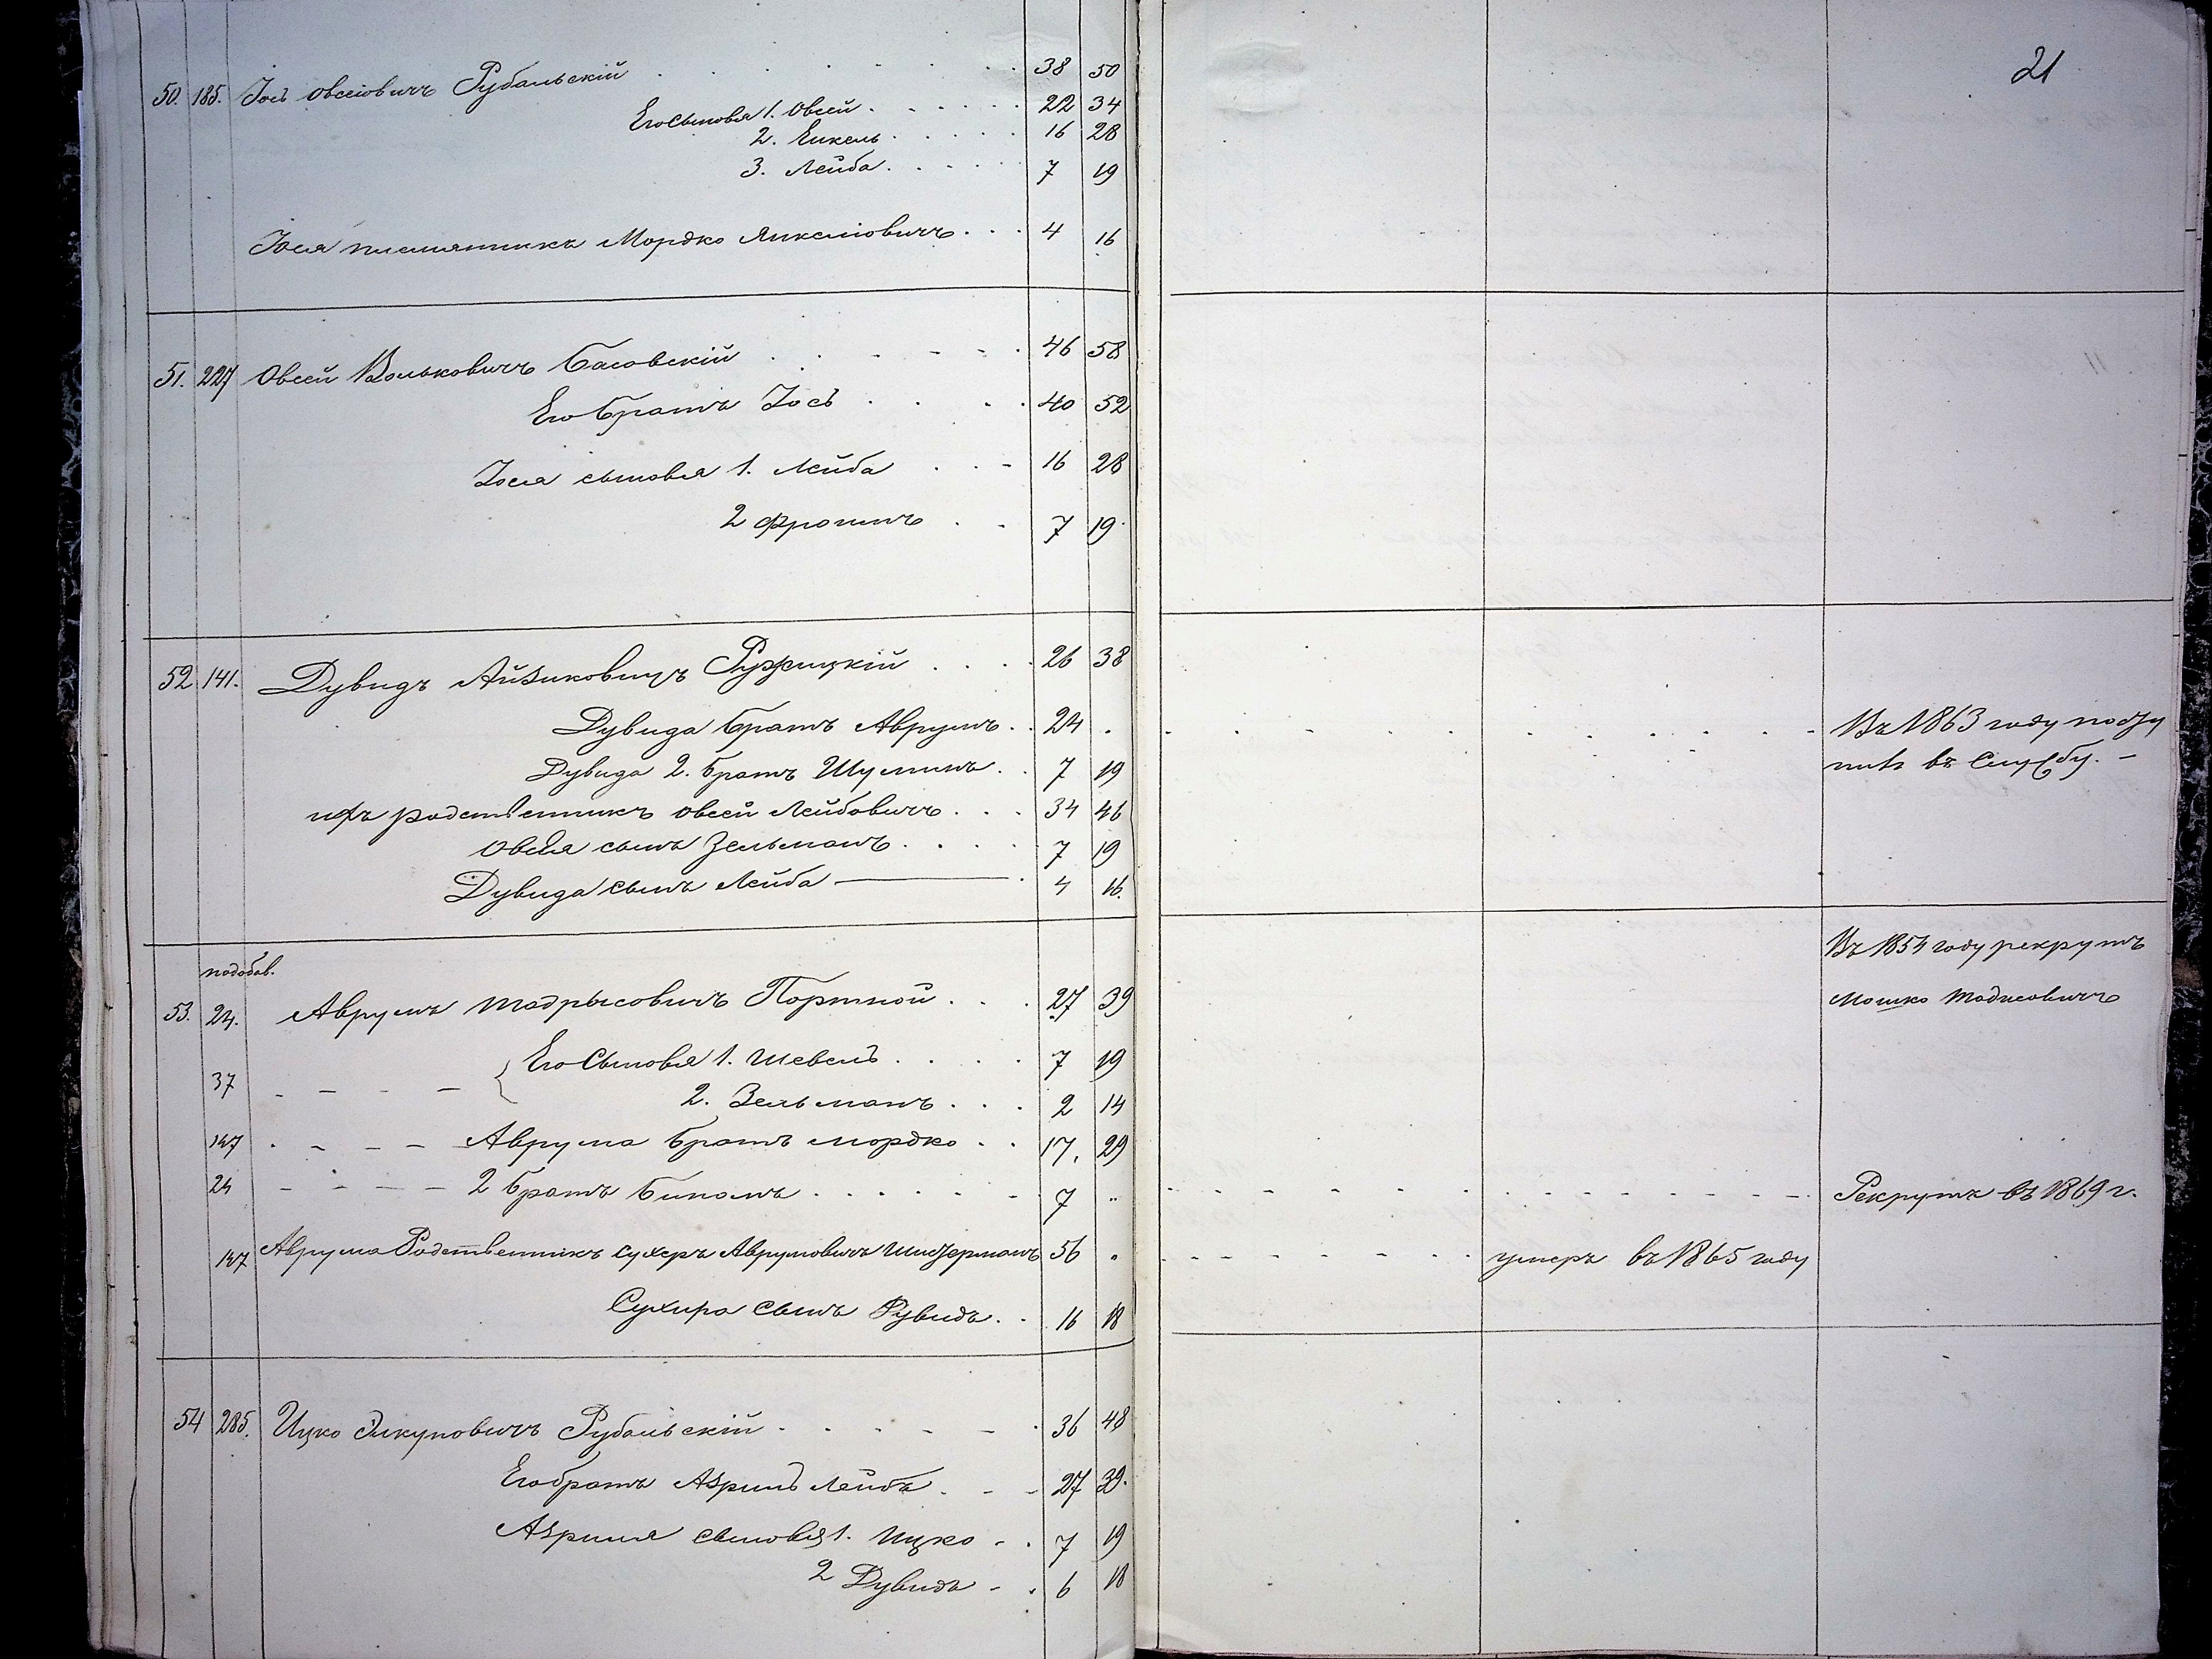 21
50. 185. Іось Овсіовичъ Рубальскій 38 50
Его Сыновья 1. Овсей 22 34
2. Енкель 16 28
3. Лейба 7 19
Іося племянникъ Мордко Янкеліовичъ 4 16
51. 227 Овсей Вольковичъ Басовскій 46 58
Его братъ Іось 40 52
Іося сыновья 1. Лейба 16 28
2 Фроимъ 7 19
52 141. Дувидъ Айзиковичъ Ружицкій 26 38
Дувида братъ Аврумъ 24 Въ 1863 году посту
Дувида 2. братъ Шулимъ 7 19 пилъ въ Службу. -
ихъ родственникъ Овсей Лейбовичъ 34 46
Овсея сынъ Зельманъ 7 19
Дувида сынъ Лейба 4 16.
Въ 1854 году рекрутъ
подобав.
53. 24. Аврумъ Тодрысовичъ Портной 27 39 Мошко Тодисовичъ
Его Сыновья 1. Шевель 7 19
37
2. Зельманъ 2 14
147 Аврума братъ Мордко 17. 29
24 2 братъ Биномъ 7 " Рекрутъ въ 1869 г.
147 Аврума Родственникъ Сухеръ Аврумовичъ 56 " умеръ въ 1865 году
Сухира Сынъ Рувидъ 16 18
54 285. Ицко Рубальскій 36 48
Его братъ Азрилъ Лейба 27 39.
Азриля сыновья 1. Ицко 7 19
2 Дувидъ 6 18